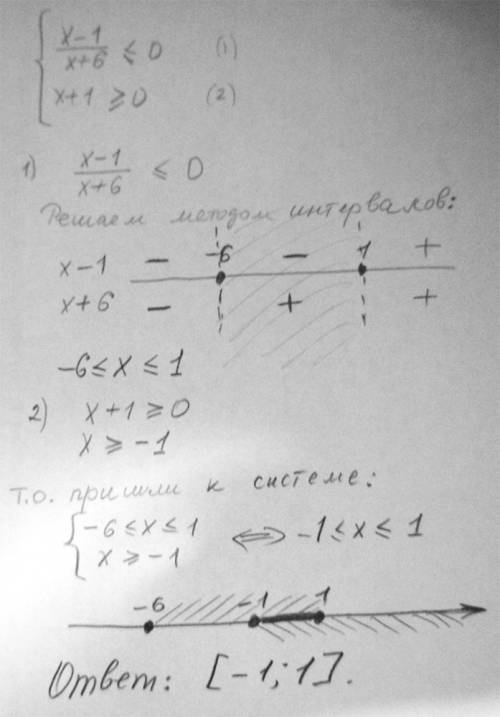 { x-1/x+6 ≤ 0 (1)
x+1 ≥ 0 (2)
1) x-1/x+6 ≤ 0
Решаем методом интервалов:
-6 1
x-1 − − +
x+6 − + +
-6 ≤ x ≤ 1
2) x+1 ≥ 0
x ≥ -1
Т.о. пришли к системе:
{ -6 ≤ x ≤ 1 ⇔ -1 ≤ x ≤ 1
x ≥ -1
-6 -1 1
Ответ: [-1; 1].